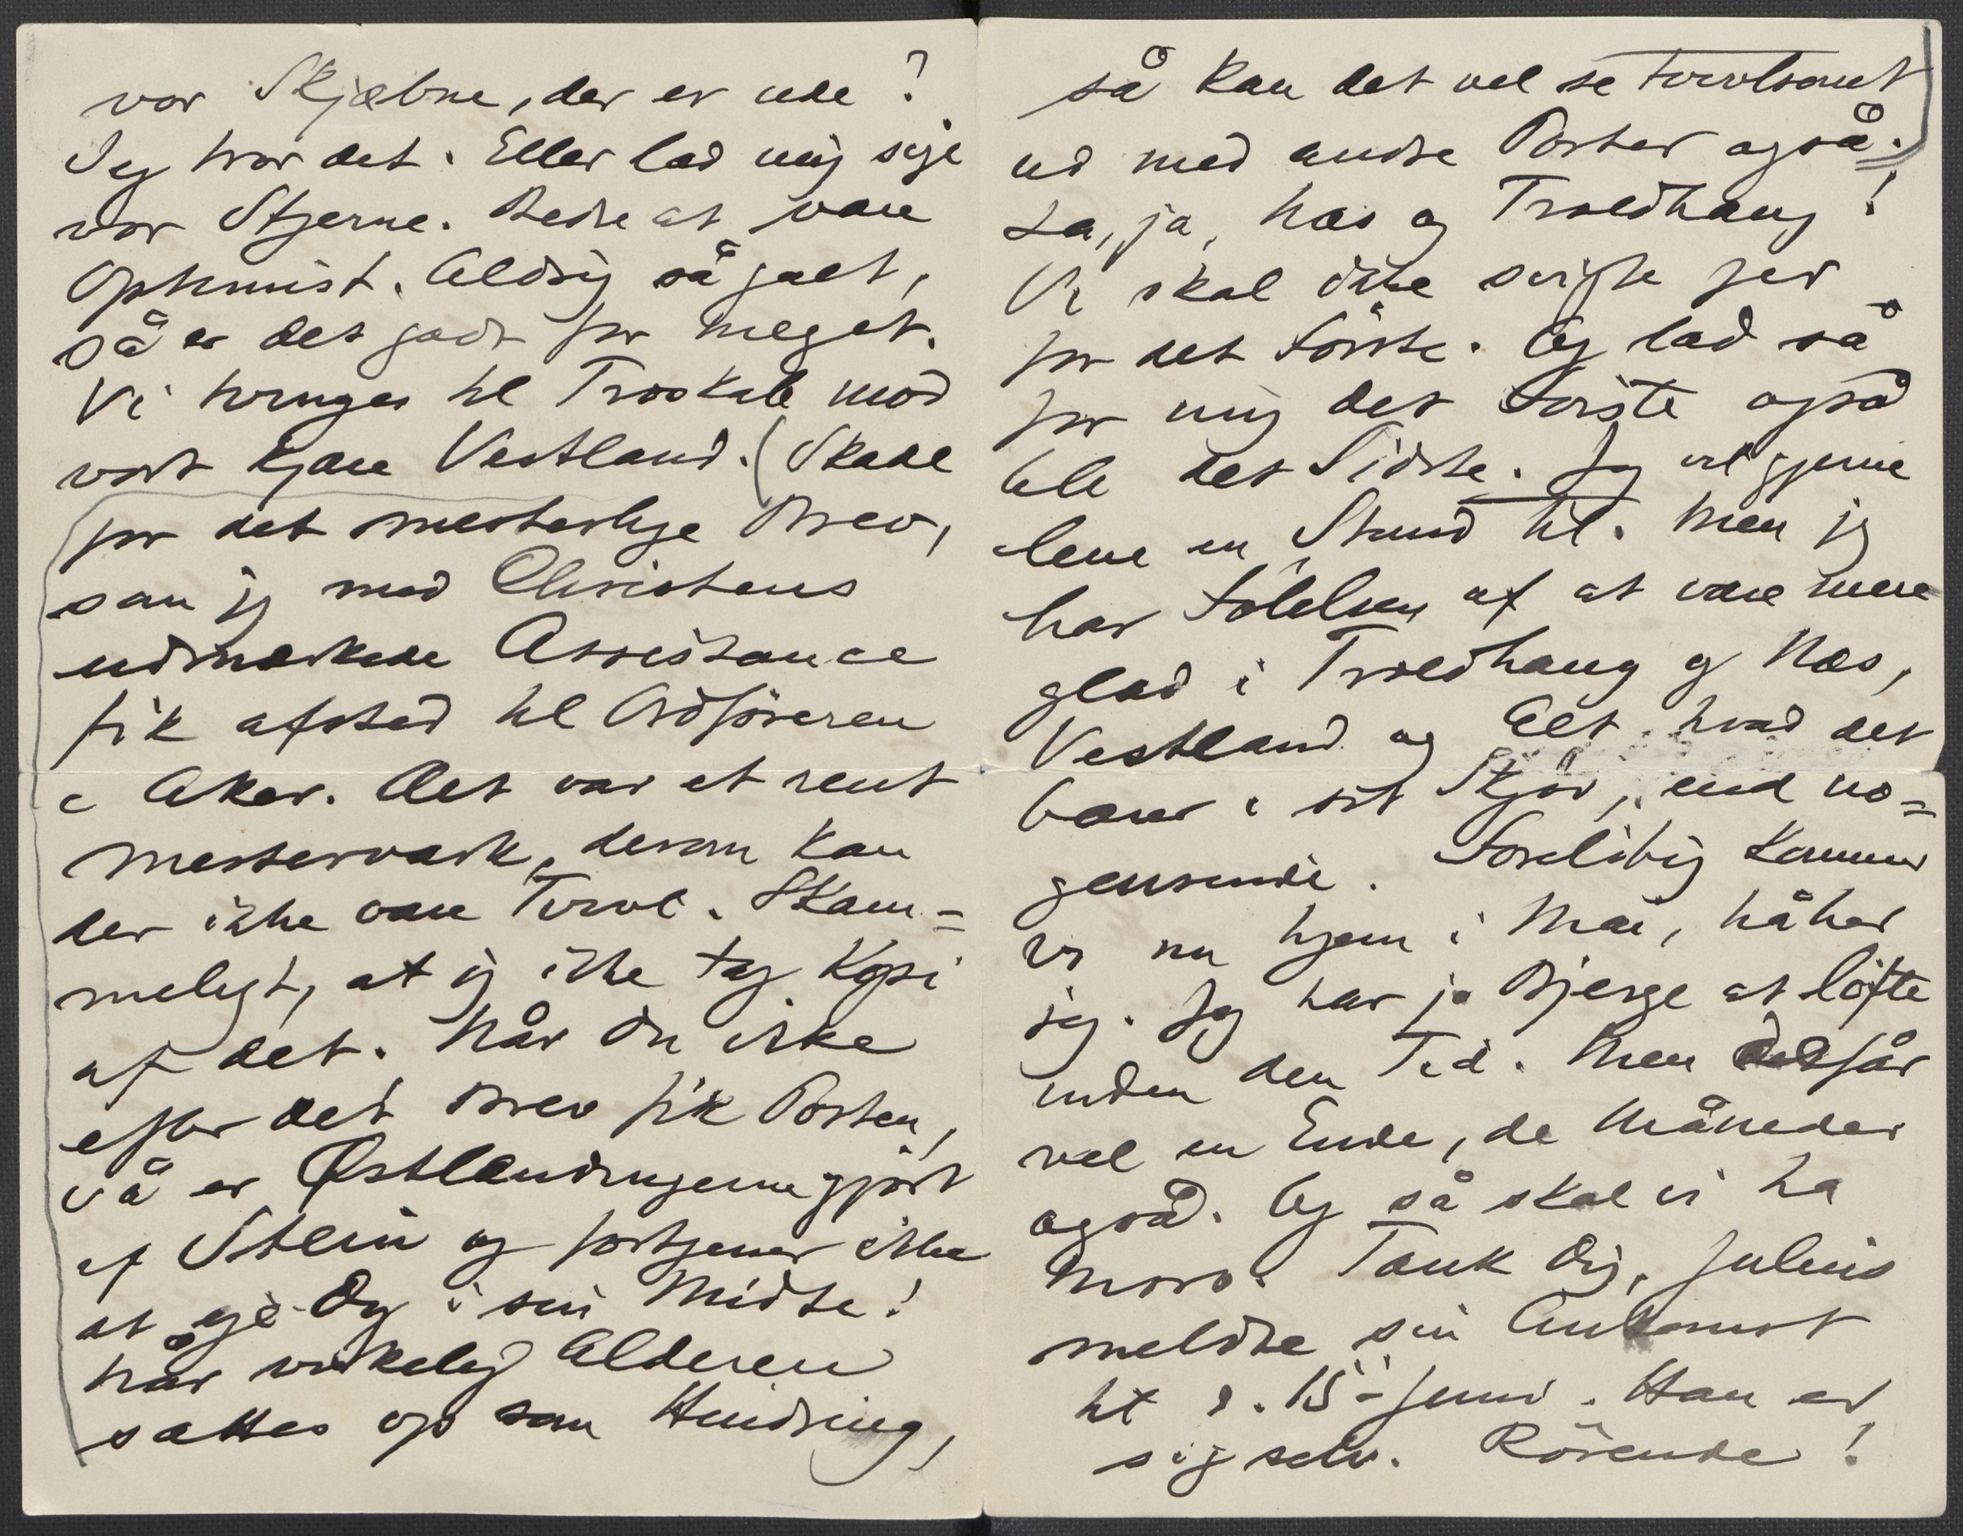 vor Skjæbne, der er ude?
Jeg tror det. Eller lad mig sige
vor Stjerne. Bedre at være
Optimist. Aldrig så galt,
så er det godt for meget.
Vi tvinges til Troskab mod
vort kjære Vestland. (Skade
for det mesterlige Brev,
som jeg med Christens
udmærkede Assistance
fik afsted til Ordföreren
i Aker. Det var et rent
Mesterværk, derom kan
der ikke være Tvivl. Skam=
meligt, at jeg ikke tog Kopi
af det. Når Du ikke
efter det Brev fik Posten,
så er Østlændingerne gjört
af Sten og fortjener ikke
at eje Dig i sin Midte!
Når virkelig Alderen
sættes op som Hindring,
så kan det vel se tvivlsomt
ud med andre Poster også.)
Ja, ja, Næs og Troldhaug!
Vi skal ikke svigte jer
for det Förste. Og lad så
for mig det Förste også
bli det Sidste. Jeg vil gjerne
leve en Stund til. Men jeg
har Fölelsen af at være mere
glad i Troldhaug og Næs,
Vestland og Alt hvad det
bærer i sit Skjöd, end no=
gensinde. Forelöbig kommer
vi nu hjem i Mai, håber
jeg. Jeg har jo Bjerge at löfte
inden den Tid. Men det får
vel en Ende, de Måneder
også. Og så skal vi ha
Moro. Tænk Dig, Julius
meldte sin Ankomst
til d. 15de Juni. Han er
sig selv. Rörende!